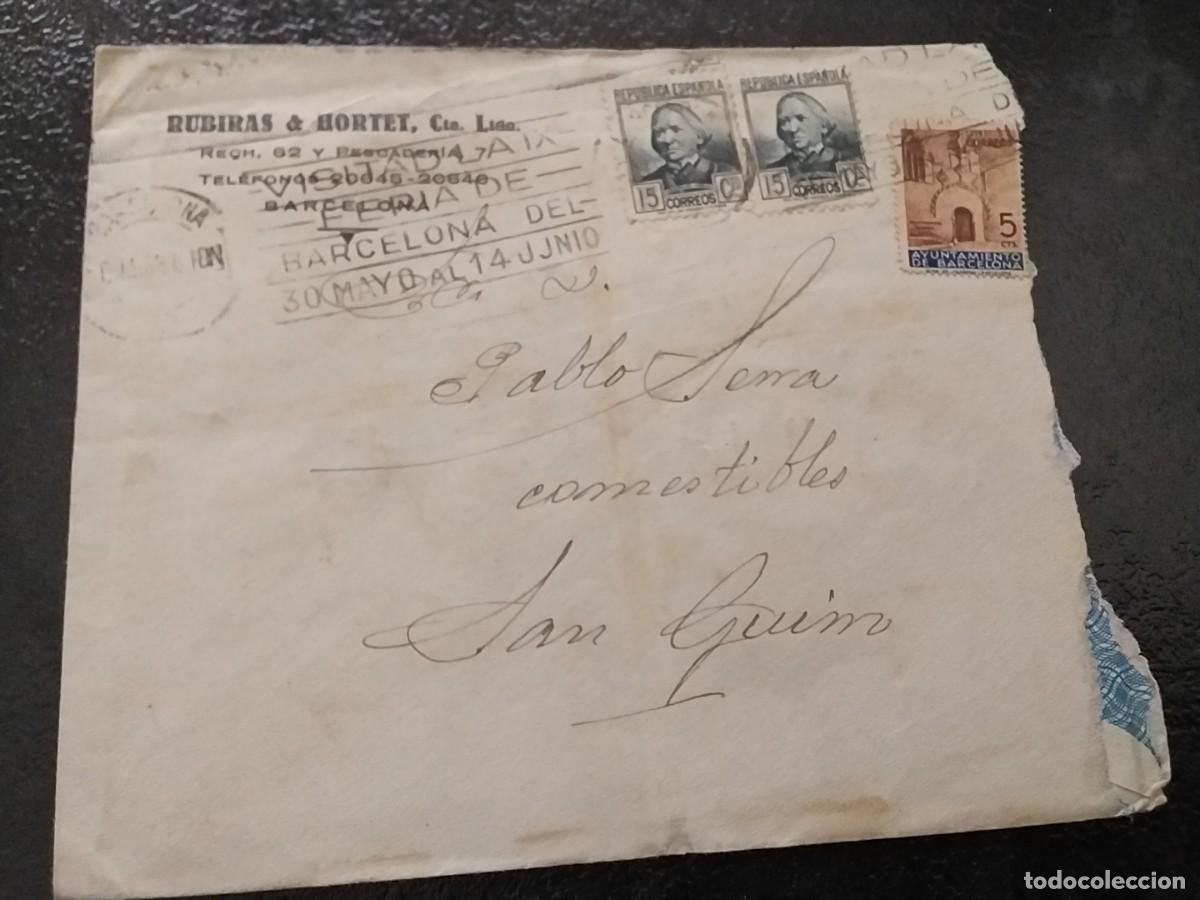 RUBIRAS & HORTET, Cía. Ltda.
RECH, 62 Y PESCADERÍA, 7
TELÉFONOS
BARCELONA
FERIA DE
BARCELONA DEL
30 MAYO AL 14 JUNIO
REPUBLICA ESPAÑOLA
15 CTS
CORREOS
REPUBLICA ESPAÑOLA
15 CTS
CORREOS
5
CTS.
AYUNTAMIENTO
DE BARCELONA
Pablo Serra
comestibles
San Guim
todocoleccion